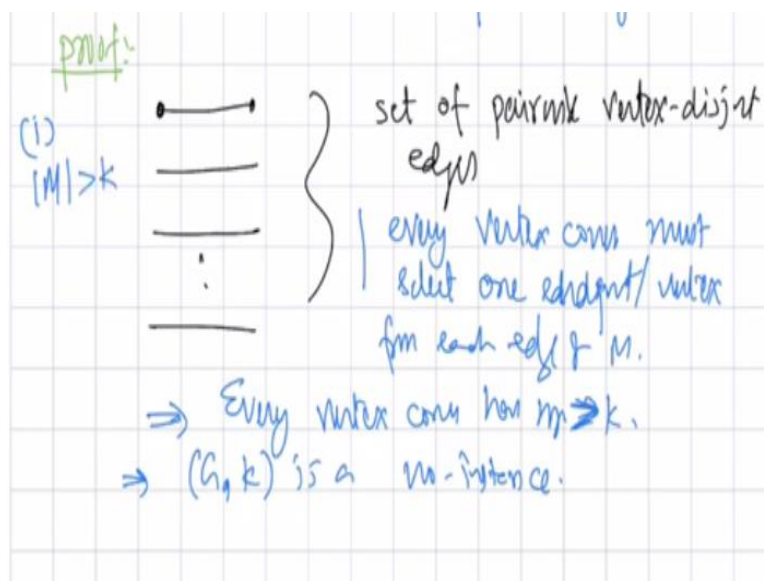 proof:
(i)
|M|>k
set of pairwise vertex-disjoint
edges
every vertex cover must
select one endpoint/vertex
from each edge of M.
⇒ Every vertex cover has > k.
⇒ (G, k) is a no-instance.